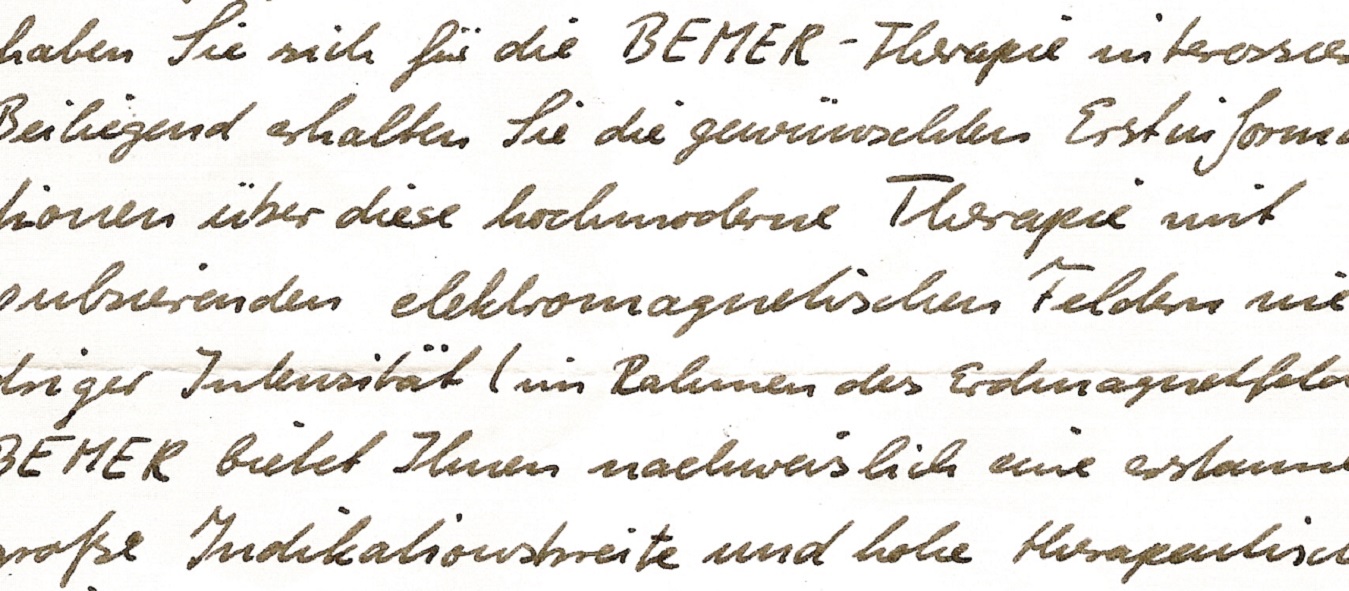 haben Sie sich für die BEMER-Therapie interessie
Beiliegend erhalten Sie die gewünschten Erstinforma
tionen über diese hochmoderne Therapie mit
pulsierenden elektromagnetischen Feldern nie
driger Intensität (im Rahmen des Erdmagnetfeld
BEMER bietet Ihnen nachweislich eine erstaun
große Indikationsbreite und hohe therapeutisch